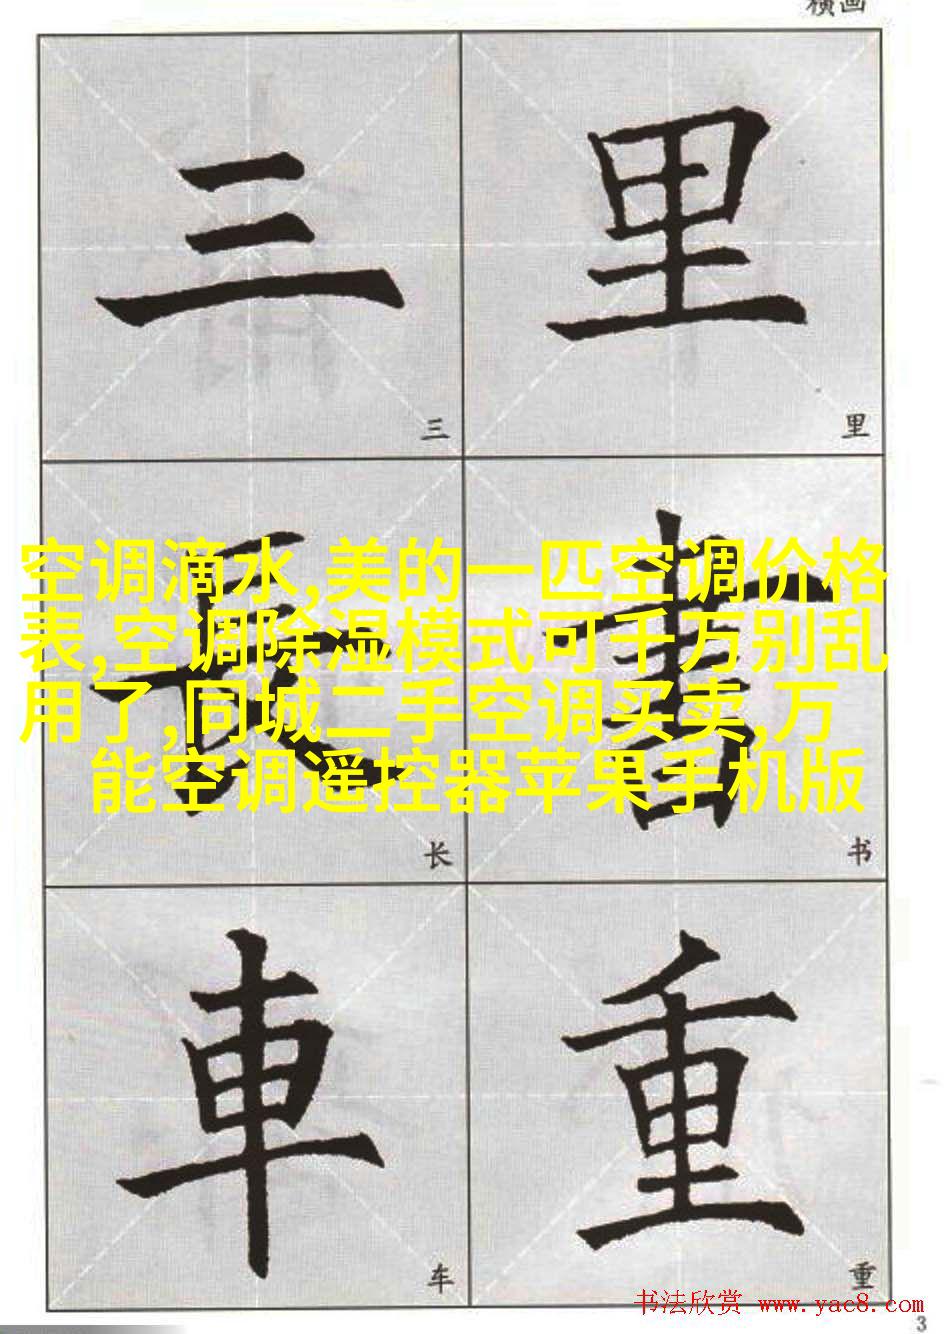 横画
三 里
三 里
空调滴水,美的一匹空调价格
表,空调除湿模式可千万别乱
用了,同城二手空调买卖,万
能空调遥控器苹果手机版
長 書
长 书
車 重
车 重
书法欣赏 www.yac8.com
3